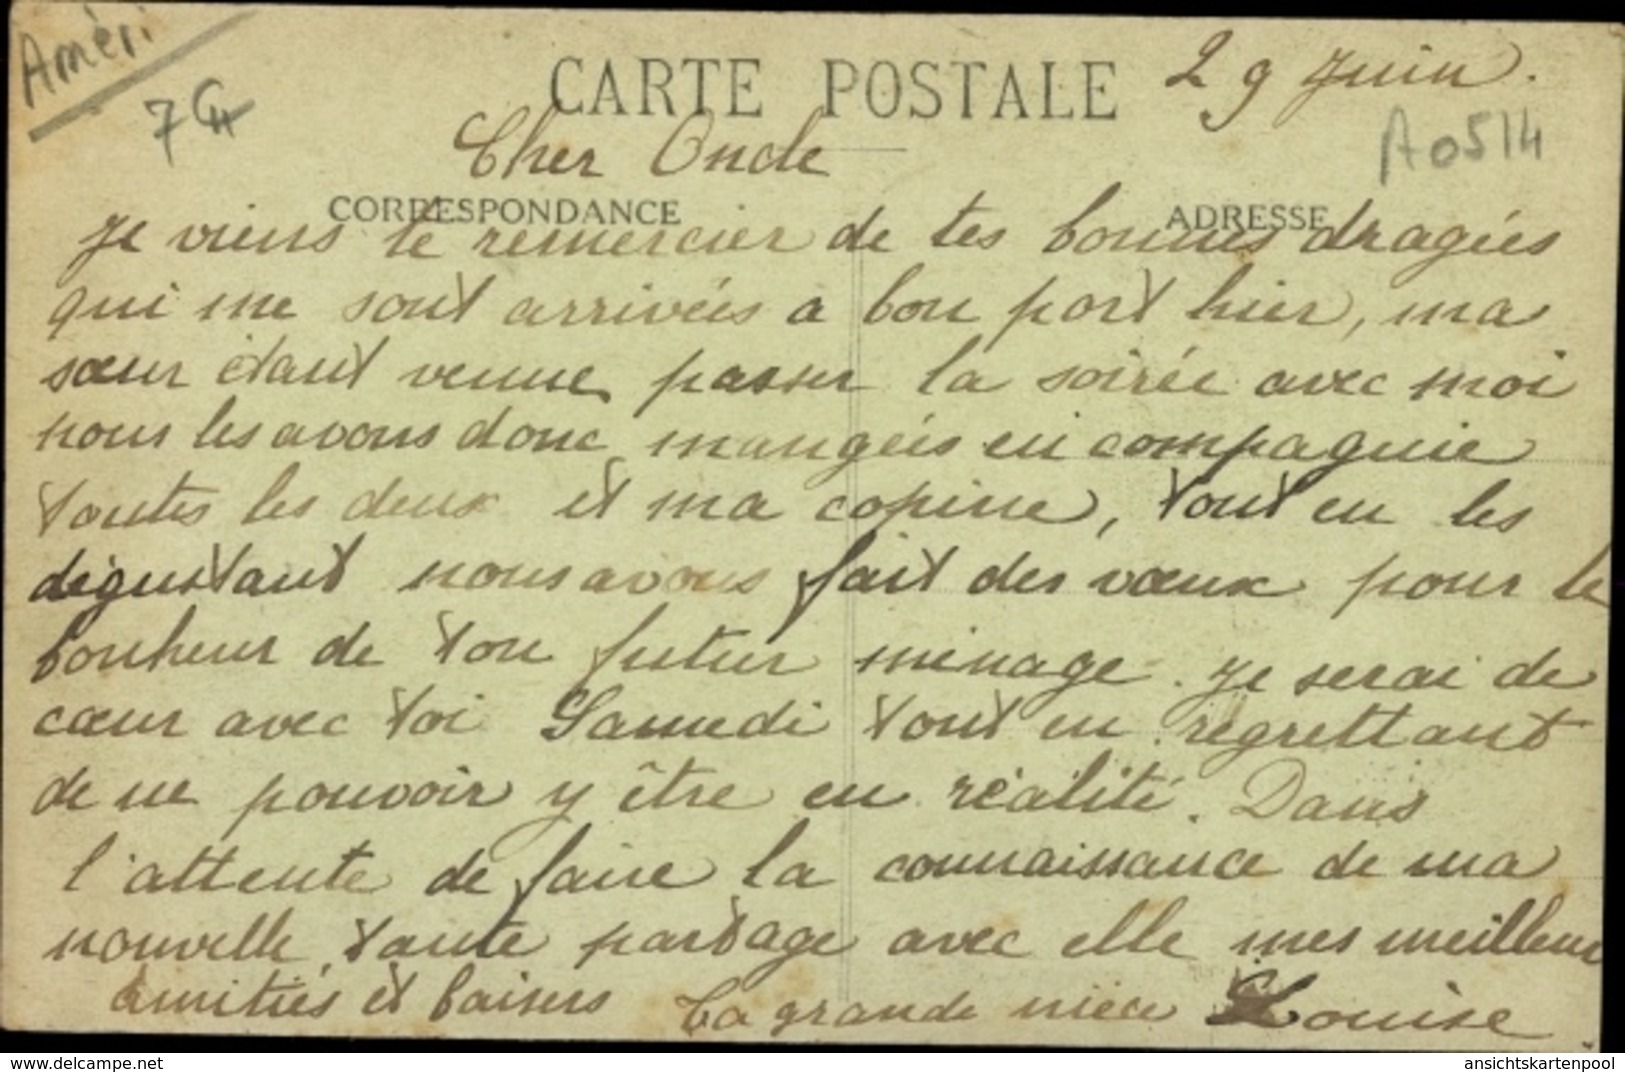 Améri
7 G
CARTE POSTALE
29 Juin.
A0514
Cher Oncle
CORRESPONDANCE
ADRESSE
Je viens te remercier de tes bonnes dragées
qui me sont arrivées a bon port hier, ma
sœur étant venue passer la soirée avec moi
nous les avons donc mangées en compagnie
toutes les deux et ma copine, tout en les
dégustant nous avons fait des vœux pour le
bonheur de ton futur ménage. Je serai de
cœur avec toi Samedi tout en regrettant
de ne pouvoir y être en réalité. Dans
l'attente de faire la connaissance de ma
nouvelle tante partage avec elle mes meilleurs
amitiés et baisers Ta grande nièce Louise
delcampe.net
ansichtskartenpool